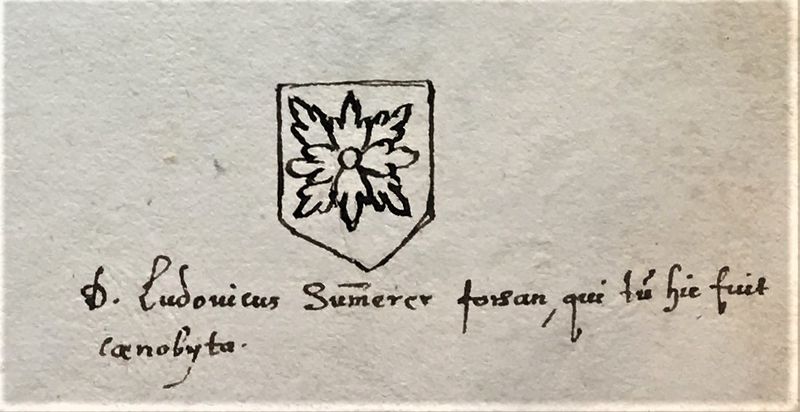 D. Ludovicus Sum̄erer forsan, qui tū hic fuit
cænobyta.